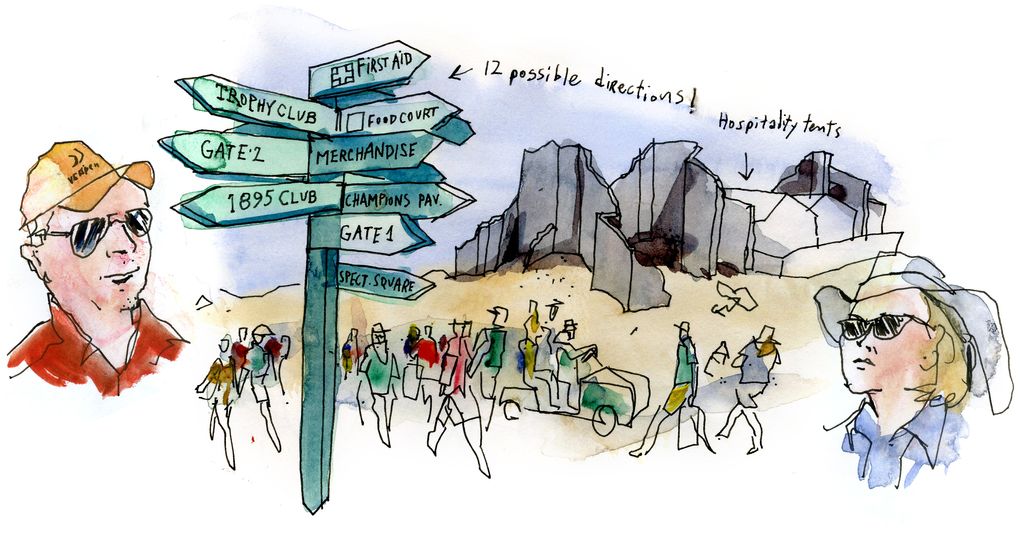 FIRST AID
12 possible directions!
TROPHY CLUB
FOOD COURT
Hospitality tents
GATE·2
MERCHANDISE
1895 CLUB
CHAMPIONS PAV.
GATE 1
SPECT. SQUARE